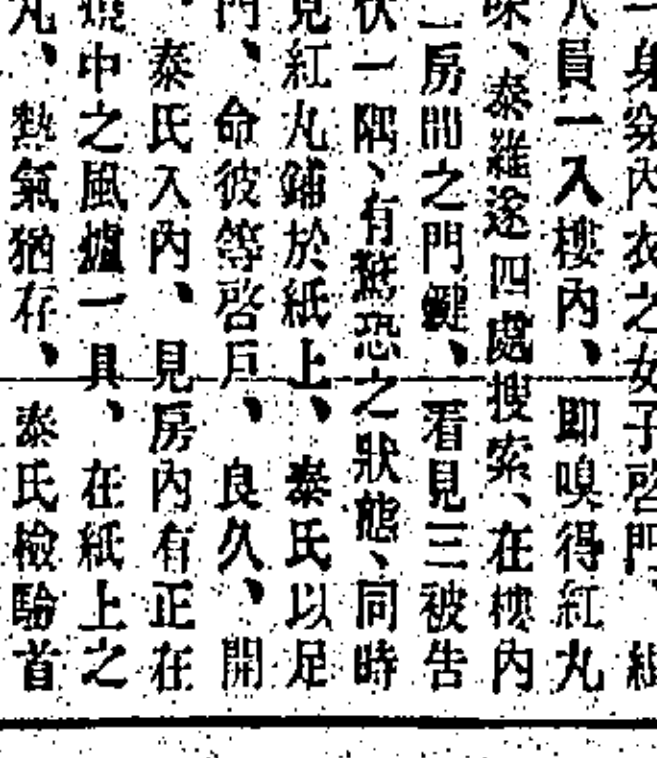 一身穿內衣之女子啓門、緝
人員一入樓內、即嗅得紅丸
味、泰羅遂四處搜索、在樓內
二房間之門鍵、看見三被告
伏一隅、有驚恐之狀態、同時
見紅丸鋪於紙上、泰氏以足
門、命彼等啓戶、良久、開
、泰氏入內、見房內有正在
燒中之風爐一具、在紙上之
丸、熱氣猶存、泰氏檢驗首